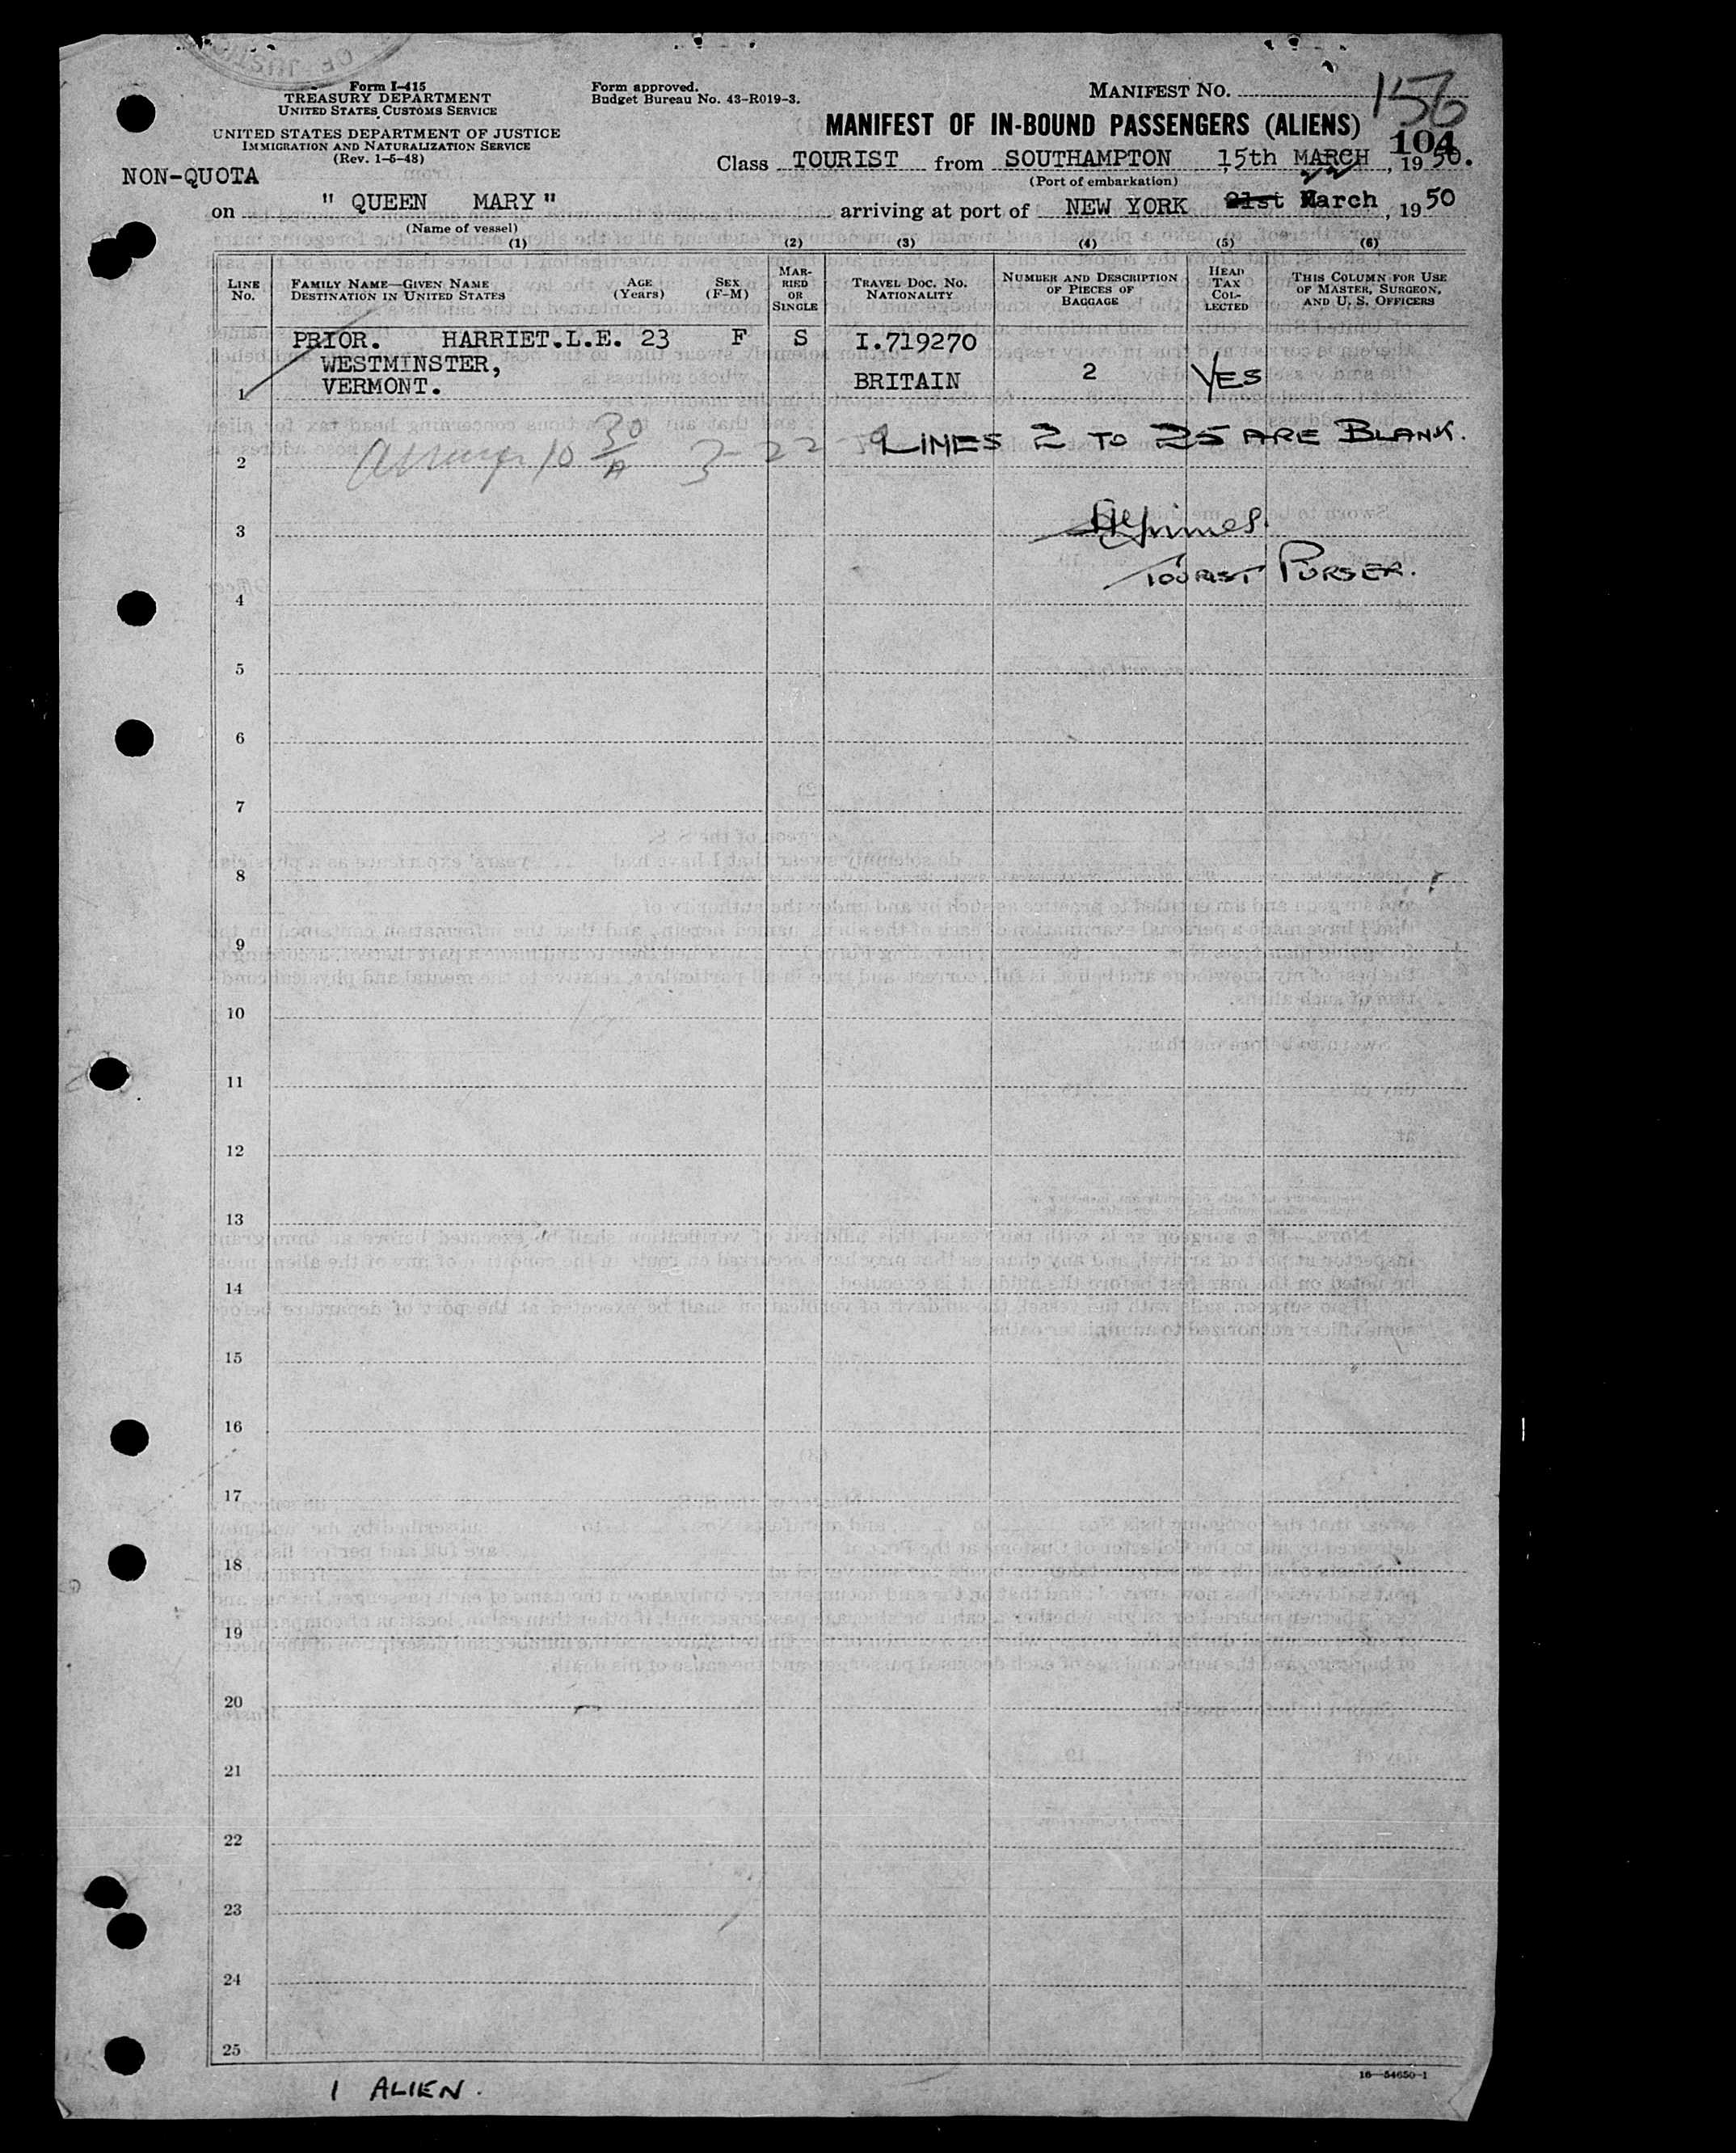 OF JUSTICE
Form I-415
TREASURY DEPARTMENT
UNITED STATES CUSTOMS SERVICE
UNITED STATES DEPARTMENT OF JUSTICE
IMMIGRATION AND NATURALIZATION SERVICE
(Rev. 1-5-48)
NON-QUOTA
Form approved.
Budget Bureau No. 43-R019-3.
MANIFEST NO. 156
MANIFEST OF IN-BOUND PASSENGERS (ALIENS)
104
Class TOURIST from SOUTHAMPTON, 15th MARCH, 1950.
(Port of embarkation)
on " QUEEN MARY " arriving at port of NEW YORK 21st March, 1950
22
(Name of vessel)
(1) (2) (3) (4) (5) (6)
LINE No.
FAMILY NAME—GIVEN NAME
DESTINATION IN UNITED STATES
AGE (Years)
SEX (F-M)
MARRIED OR SINGLE
TRAVEL DOC. NO.
NATIONALITY
NUMBER AND DESCRIPTION OF PIECES OF BAGGAGE
HEAD TAX COLLECTED
THIS COLUMN FOR USE OF MASTER, SURGEON, AND U. S. OFFICERS
PRIOR. HARRIET.L.E. 23 F S I.719270
WESTMINSTER,
1 VERMONT. BRITAIN 2 YES
10 30/A 3-22 LINES 2 TO 25 ARE BLANK.
2
3
TOURIST PURSER.
4
5
6
7
8
9
10
11
12
13
14
15
16
17
18
19
20
21
22
23
24
25
16—54650-1
1 ALIEN.